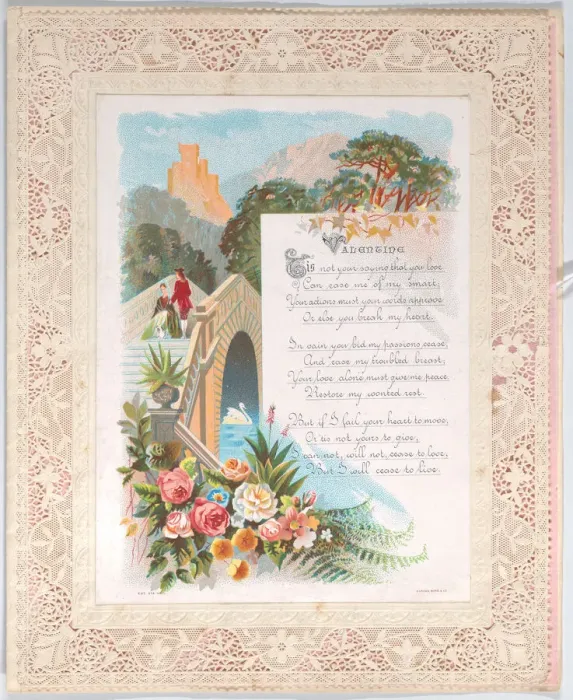 Valentine
Tis not your saying that you love
Can ease me of my smart,
Your actions must your words approve
Or else you break my heart.
In vain you bid my passions cease,
And ease my troubled breast,
Your love alone must give me peace
Restore my wonted rest.
But if I fail your heart to move,
Or tis not yours to give,
I can not, will not, cease to love,
But I will cease to live.